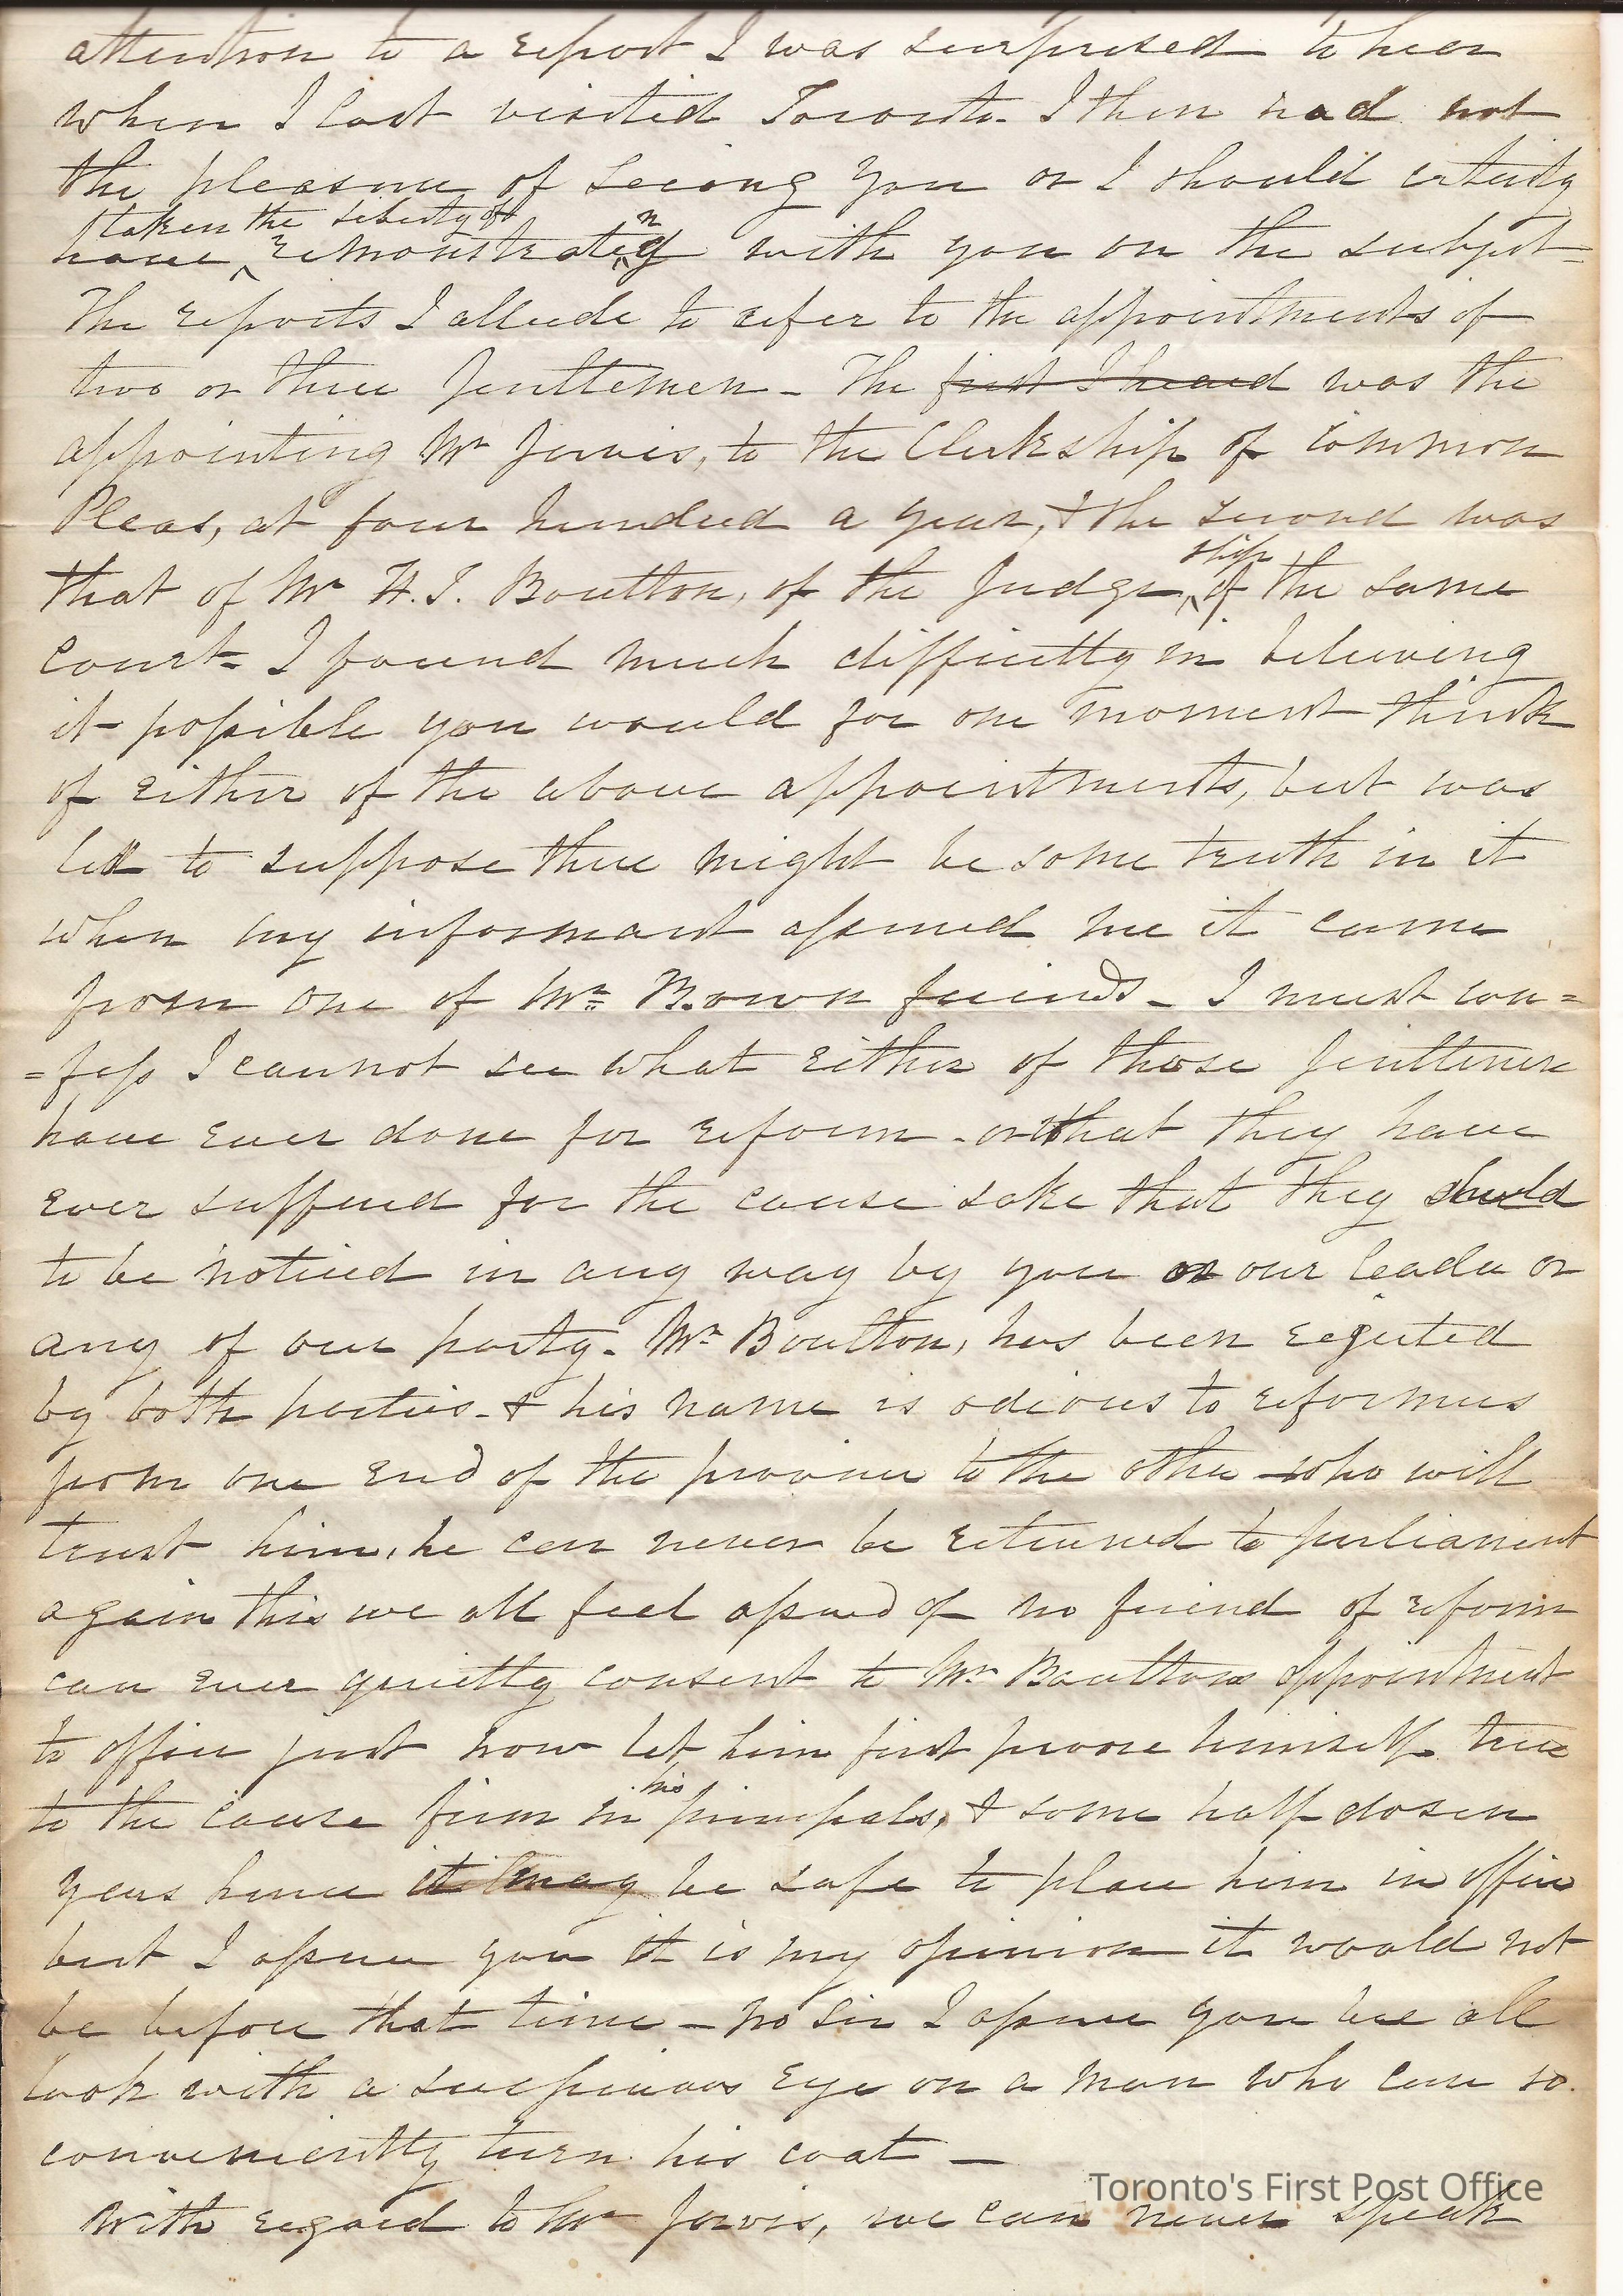 attention to a report I was surprised to hear
when I last visited Toronto. I then had not
the pleasure of seeing you or I should certainly
taken the liberty of
have remonstrating with you on the subject=
The reports I allude to refer to the appointments of
two or three Jenttlemen - The first I heard was the
appointing Mr Jarvis, to the Clerkship of Common
Pleas, at four hundred a year, & the second was
that of Mr H. J. Boulton, of the Judge ship of the same
court= I found much difficulty in believing
it possible you would for one moment think
of either of the above appointments, but was
led to suppose there might be some truth in it
when my informant assured me it came
from one of Mr B. own friends - I must con=
=fess I cannot see what either of those Jenttlemen
have ever done for reform - or that they have
ever suffered for the cause sake that they should
to be noticed in any way by you or our leader or
any of our party. Mr Boulton, has been rejected
by both parties - & his name is odious to reformers
from one end of the province to the other - who will
trust him, he can never be returned to parliament
again this we all feel assured of no friend of reform
can ever quietly consent to Mr Boultons appointment
to office just now let him first proove himself true
to the cause firm in his principals, & some half dosen
years hence it may be safe to place him in office
but I assure you it is my opinion it would not
be before that time - no Sir I assure you we all
look with a suspicious eye on a man who can so
conveniently turn his coat -
With regard to Mr Jarvis, we can never speak
Toronto's First Post Office